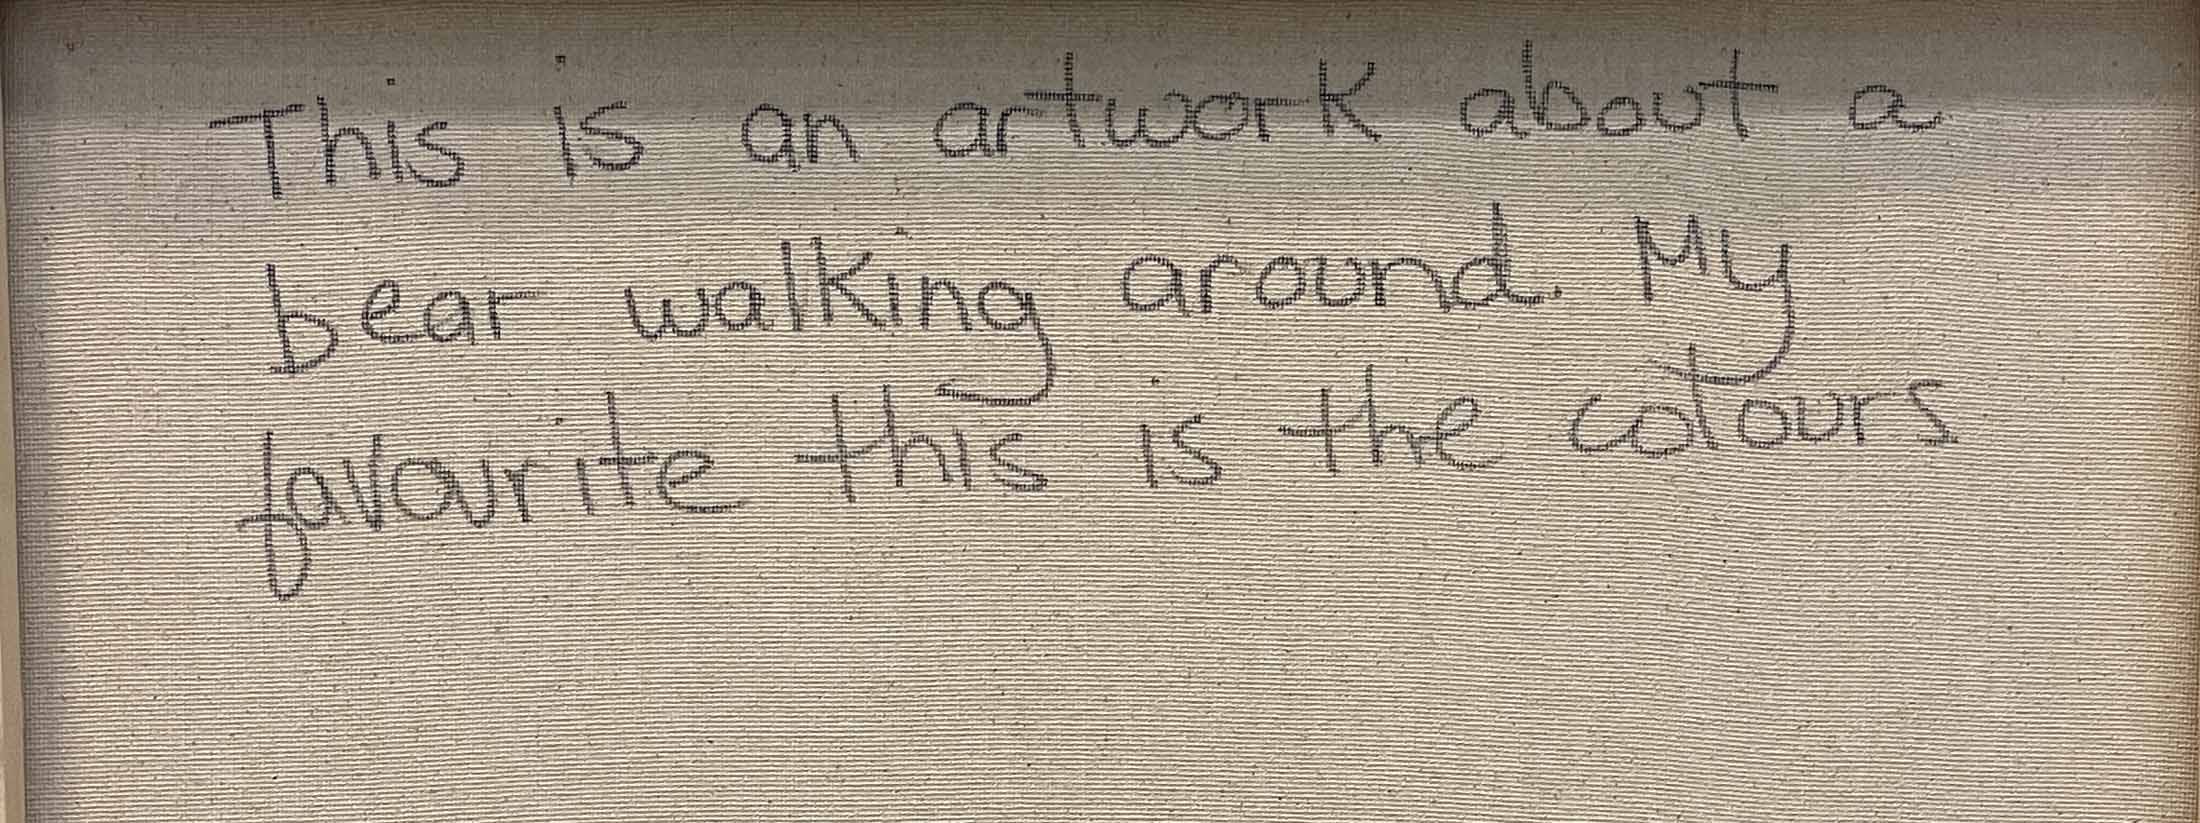 This is an artwork about a
bear walking around. My
favourite this is the colours